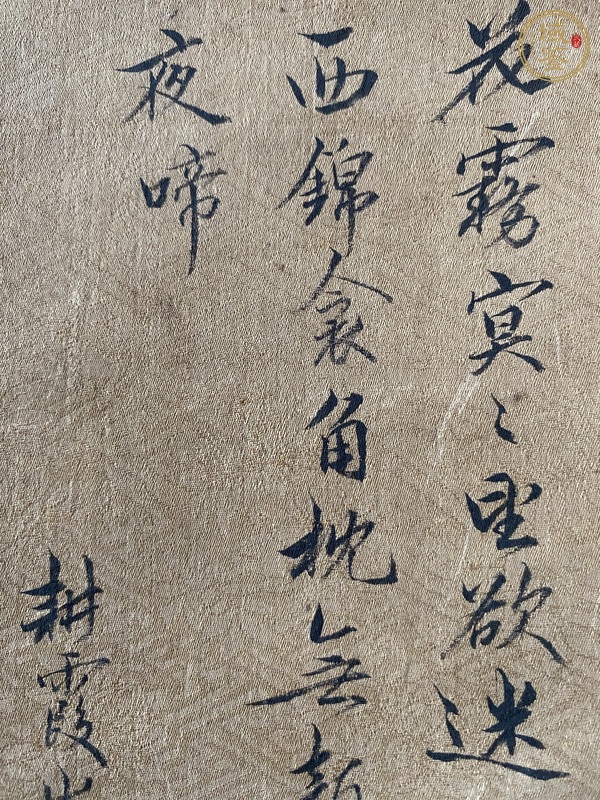 花霧冥〻望欲迷
西錦衾角枕無
夜啼
耕霞